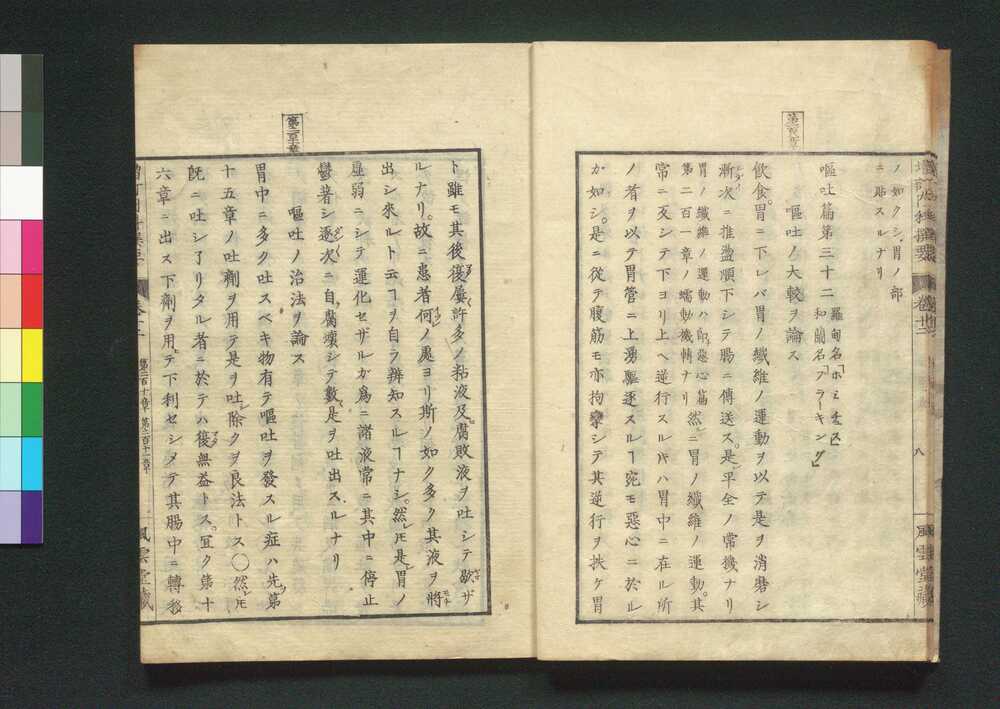 ノ如クシ、胃ノ部
ニ貼スルナリ
嘔吐篇第三十二 羅甸名「ホミチュス」
和蘭名「ブラーキング」
嘔吐ノ大較ヲ論ス
飲食。胃ニ下レバ胃ノ纖維ノ運動ヲ以テ是ヲ消磨シ
漸次ニ推盪順下シテ腸ニ傳送ス。是レ平全ノ常機ナリ
胃ノ纖維ノ運動ハ即惡心篇
第二百一章ノ蠕動機轉ナリ 然ニ胃ノ纖維ノ運動。其
常ニ反シテ下ヨリ上ヘ逆行スル片ハ胃中ニ在ル所
ノ者ヲ以テ胃管ニ上湧驅逐スルヿ宛モ惡心ニ於ル
カ如シ。是ニ從テ腹筋モ亦拘攣シテ其逆行ヲ扶ケ胃
八
風雲堂藏
ト雖モ其後復屢許多ノ粘液及腐敗液ヲ吐シテ歇ザ
ルナリ。故ニ患者何ノ處ヨリ斯ノ如ク多ク其液ヲ將
出シ來ルト云ヿヲ自ラ辨知スルヿナシ。然レ𪜈是胃ノ
虚弱ニシテ運化セザルガ爲ニ諸液常ニ其中ニ停止
鬱著シ逐次ニ自腐壞シテ數是ヲ吐出スルナリ
嘔吐ノ治法ヲ論ス
胃中ニ多ク吐スベキ物有テ嘔吐ヲ發スル症ハ先第
十五章ノ吐劑ヲ用テ是ヲ吐除クヲ良法トス〇然レ𪜈
既ニ吐シ了リタル者ニ於テハ復無益トス。宜ク第十
六章ニ出ス下劑ヲ用テ下利セシメテ其腸中ニ轉移
第二百十章 第二百十一章
風雲堂藏